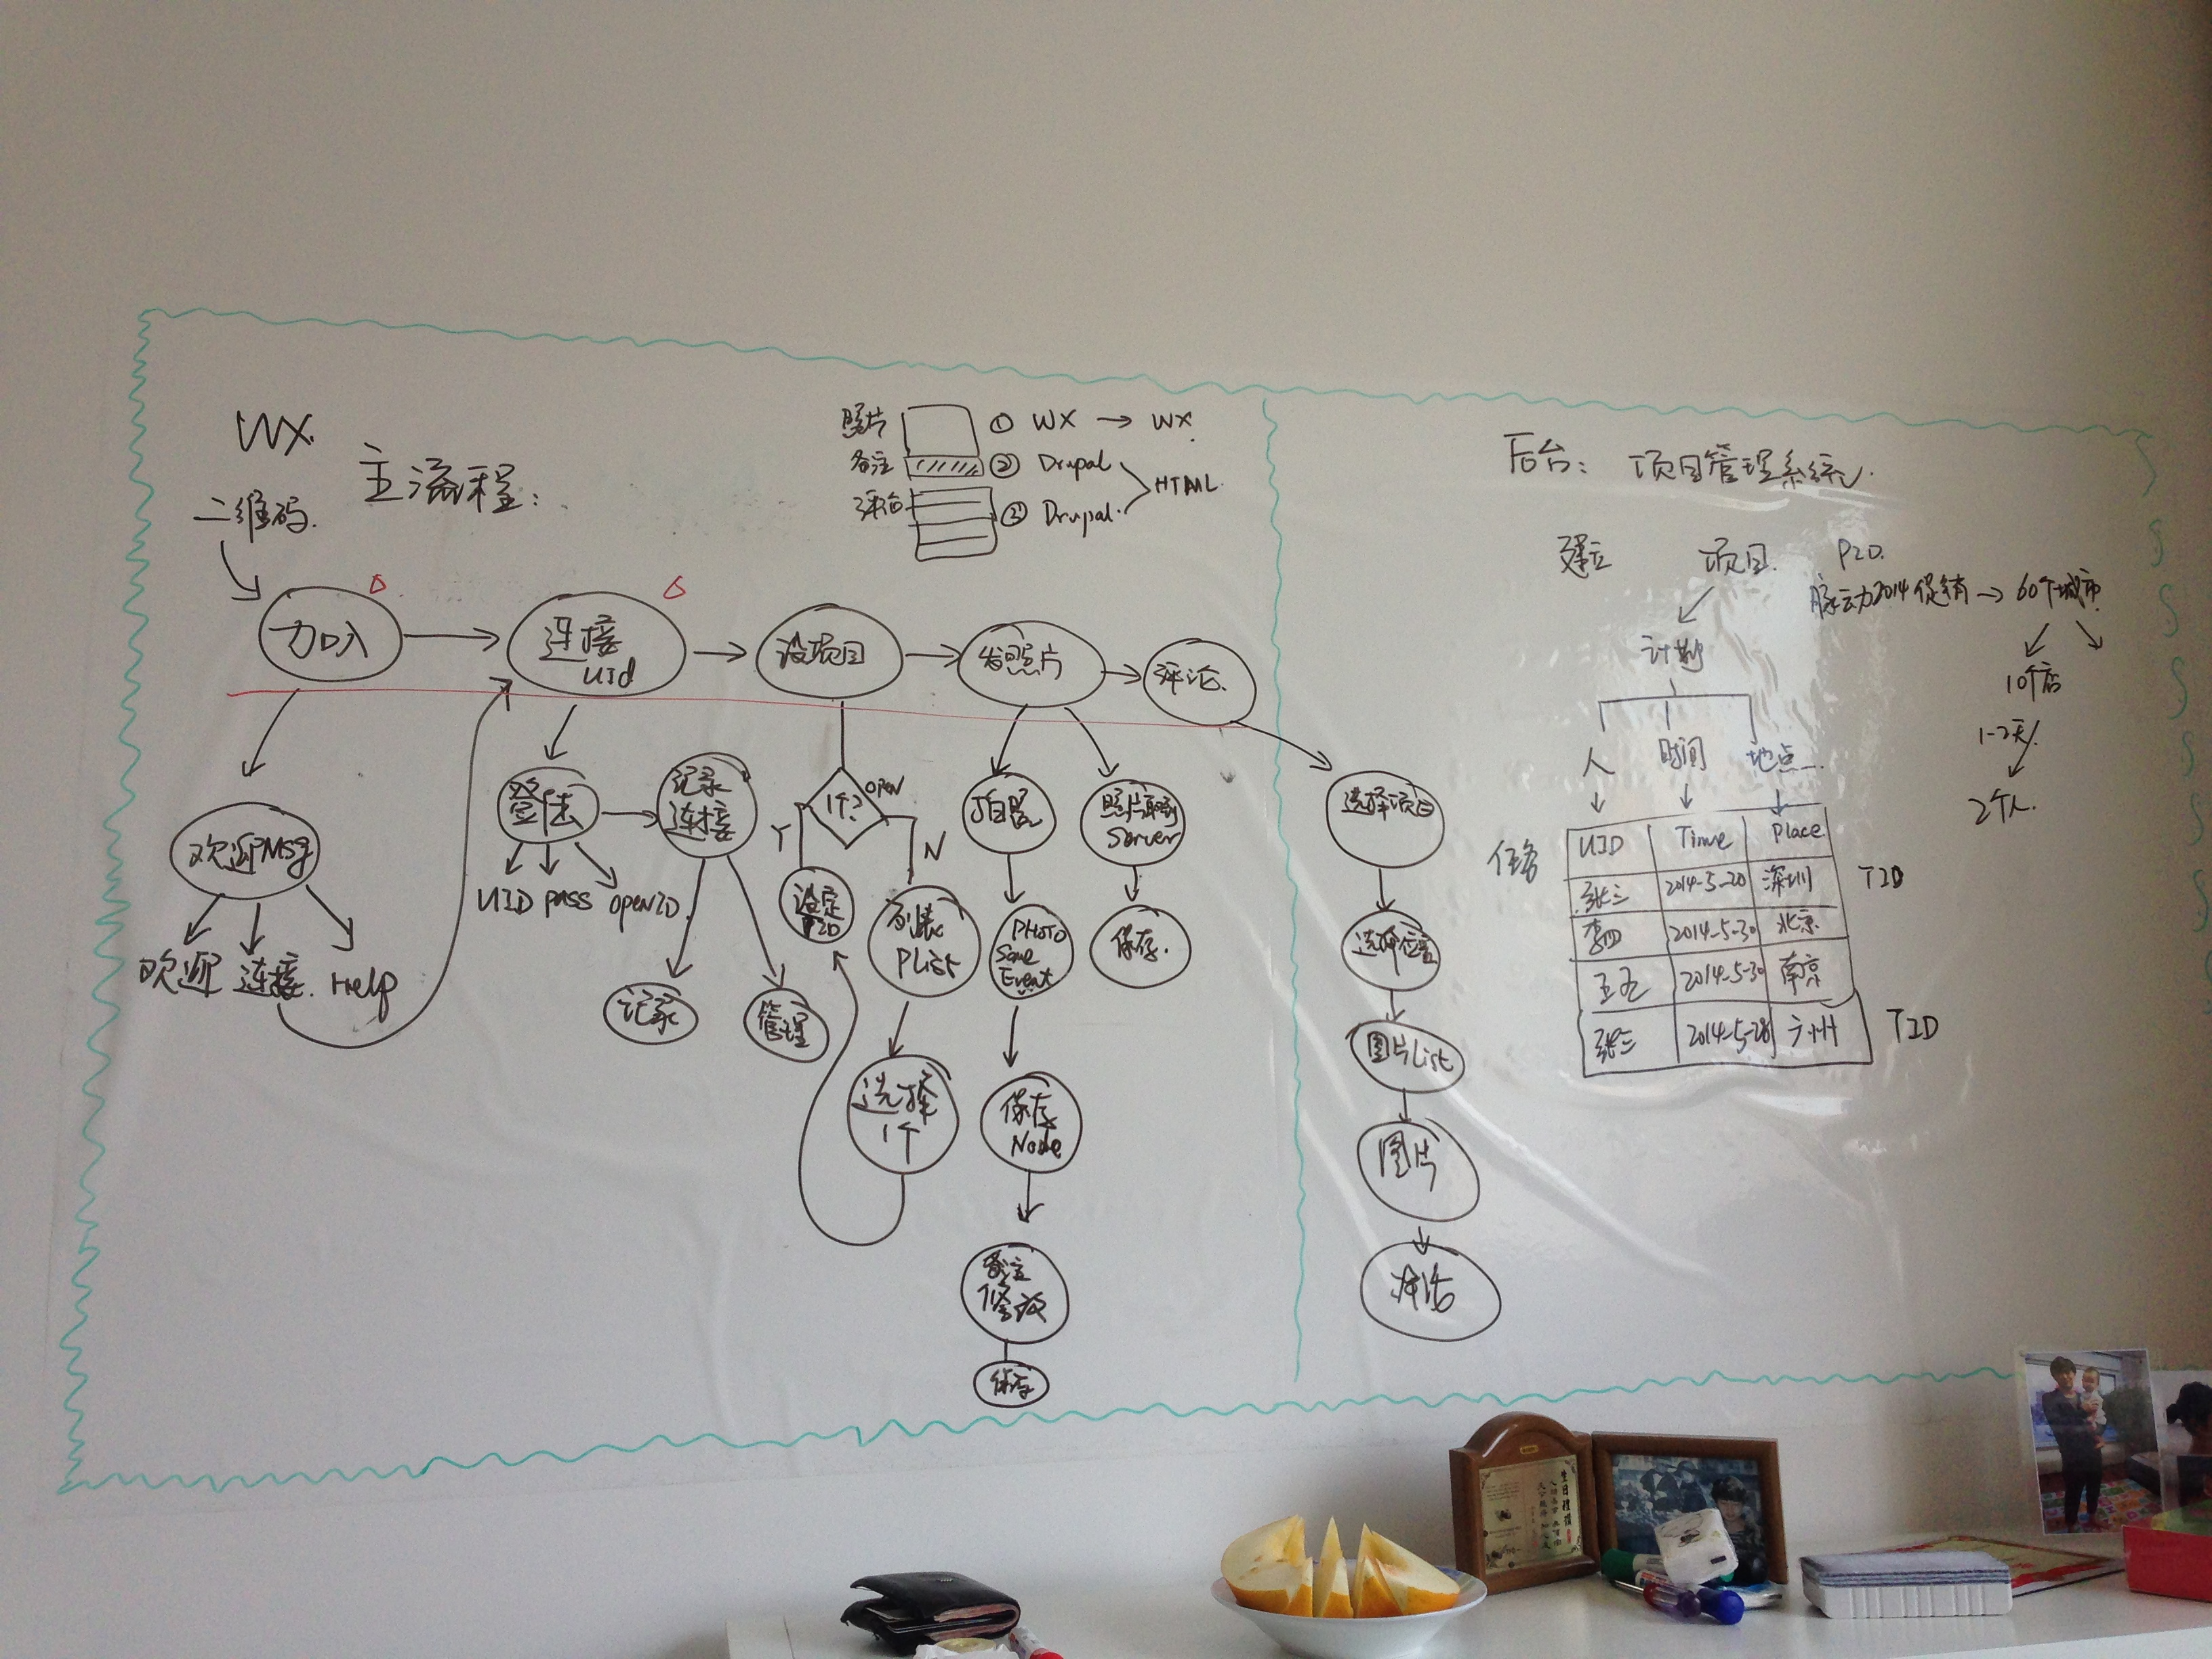 WX.
主流程:
二维码.
照片 ① WX → WX.
备注 ② Drupal
HTML
评论 ③ Drupal.
加入
连接
uid
设项目
发照片
评论.
欢迎Msg
欢迎 连接. Help
登陆
UID pass openID.
记录
连接
记录
管理
1个?
OPEN
Y
N
设定
PID
列表
PList
选择
1个
拍照
PHOTO
Event
保存
Node
备注
修改
保存
Server
保存.
选择项目
选择位置
图片List
图片
评论
后台: 项目管理系统.
建立 项目. PID.
脉动2014促销 → 60个城市.
10个店
1-2天/.
2个人.
计划
人 时间 地点
任务
UID Time Place
张三 2014-5-20 深圳
李四 2014-5-30 北京
王五 2014-5-30 南京
张三 2014-5-28 广州
TID
TID